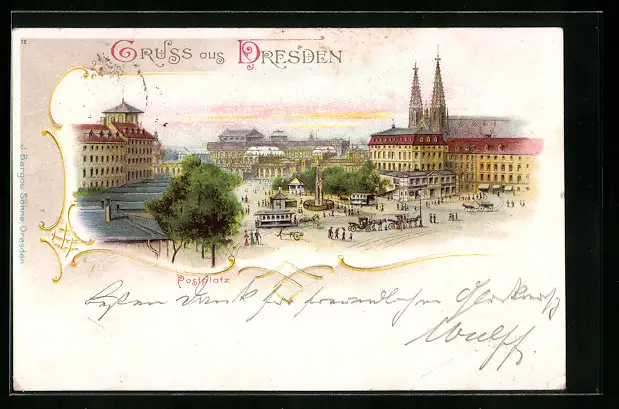 12.
GRUSS aus DRESDEN
J. Bergau Söhne Dresden
Postplatz
Besten Dank für freundlichen
Wulff.